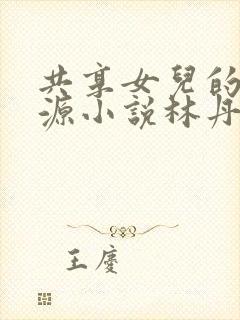 共享女兒的
源小説林丹
王慶